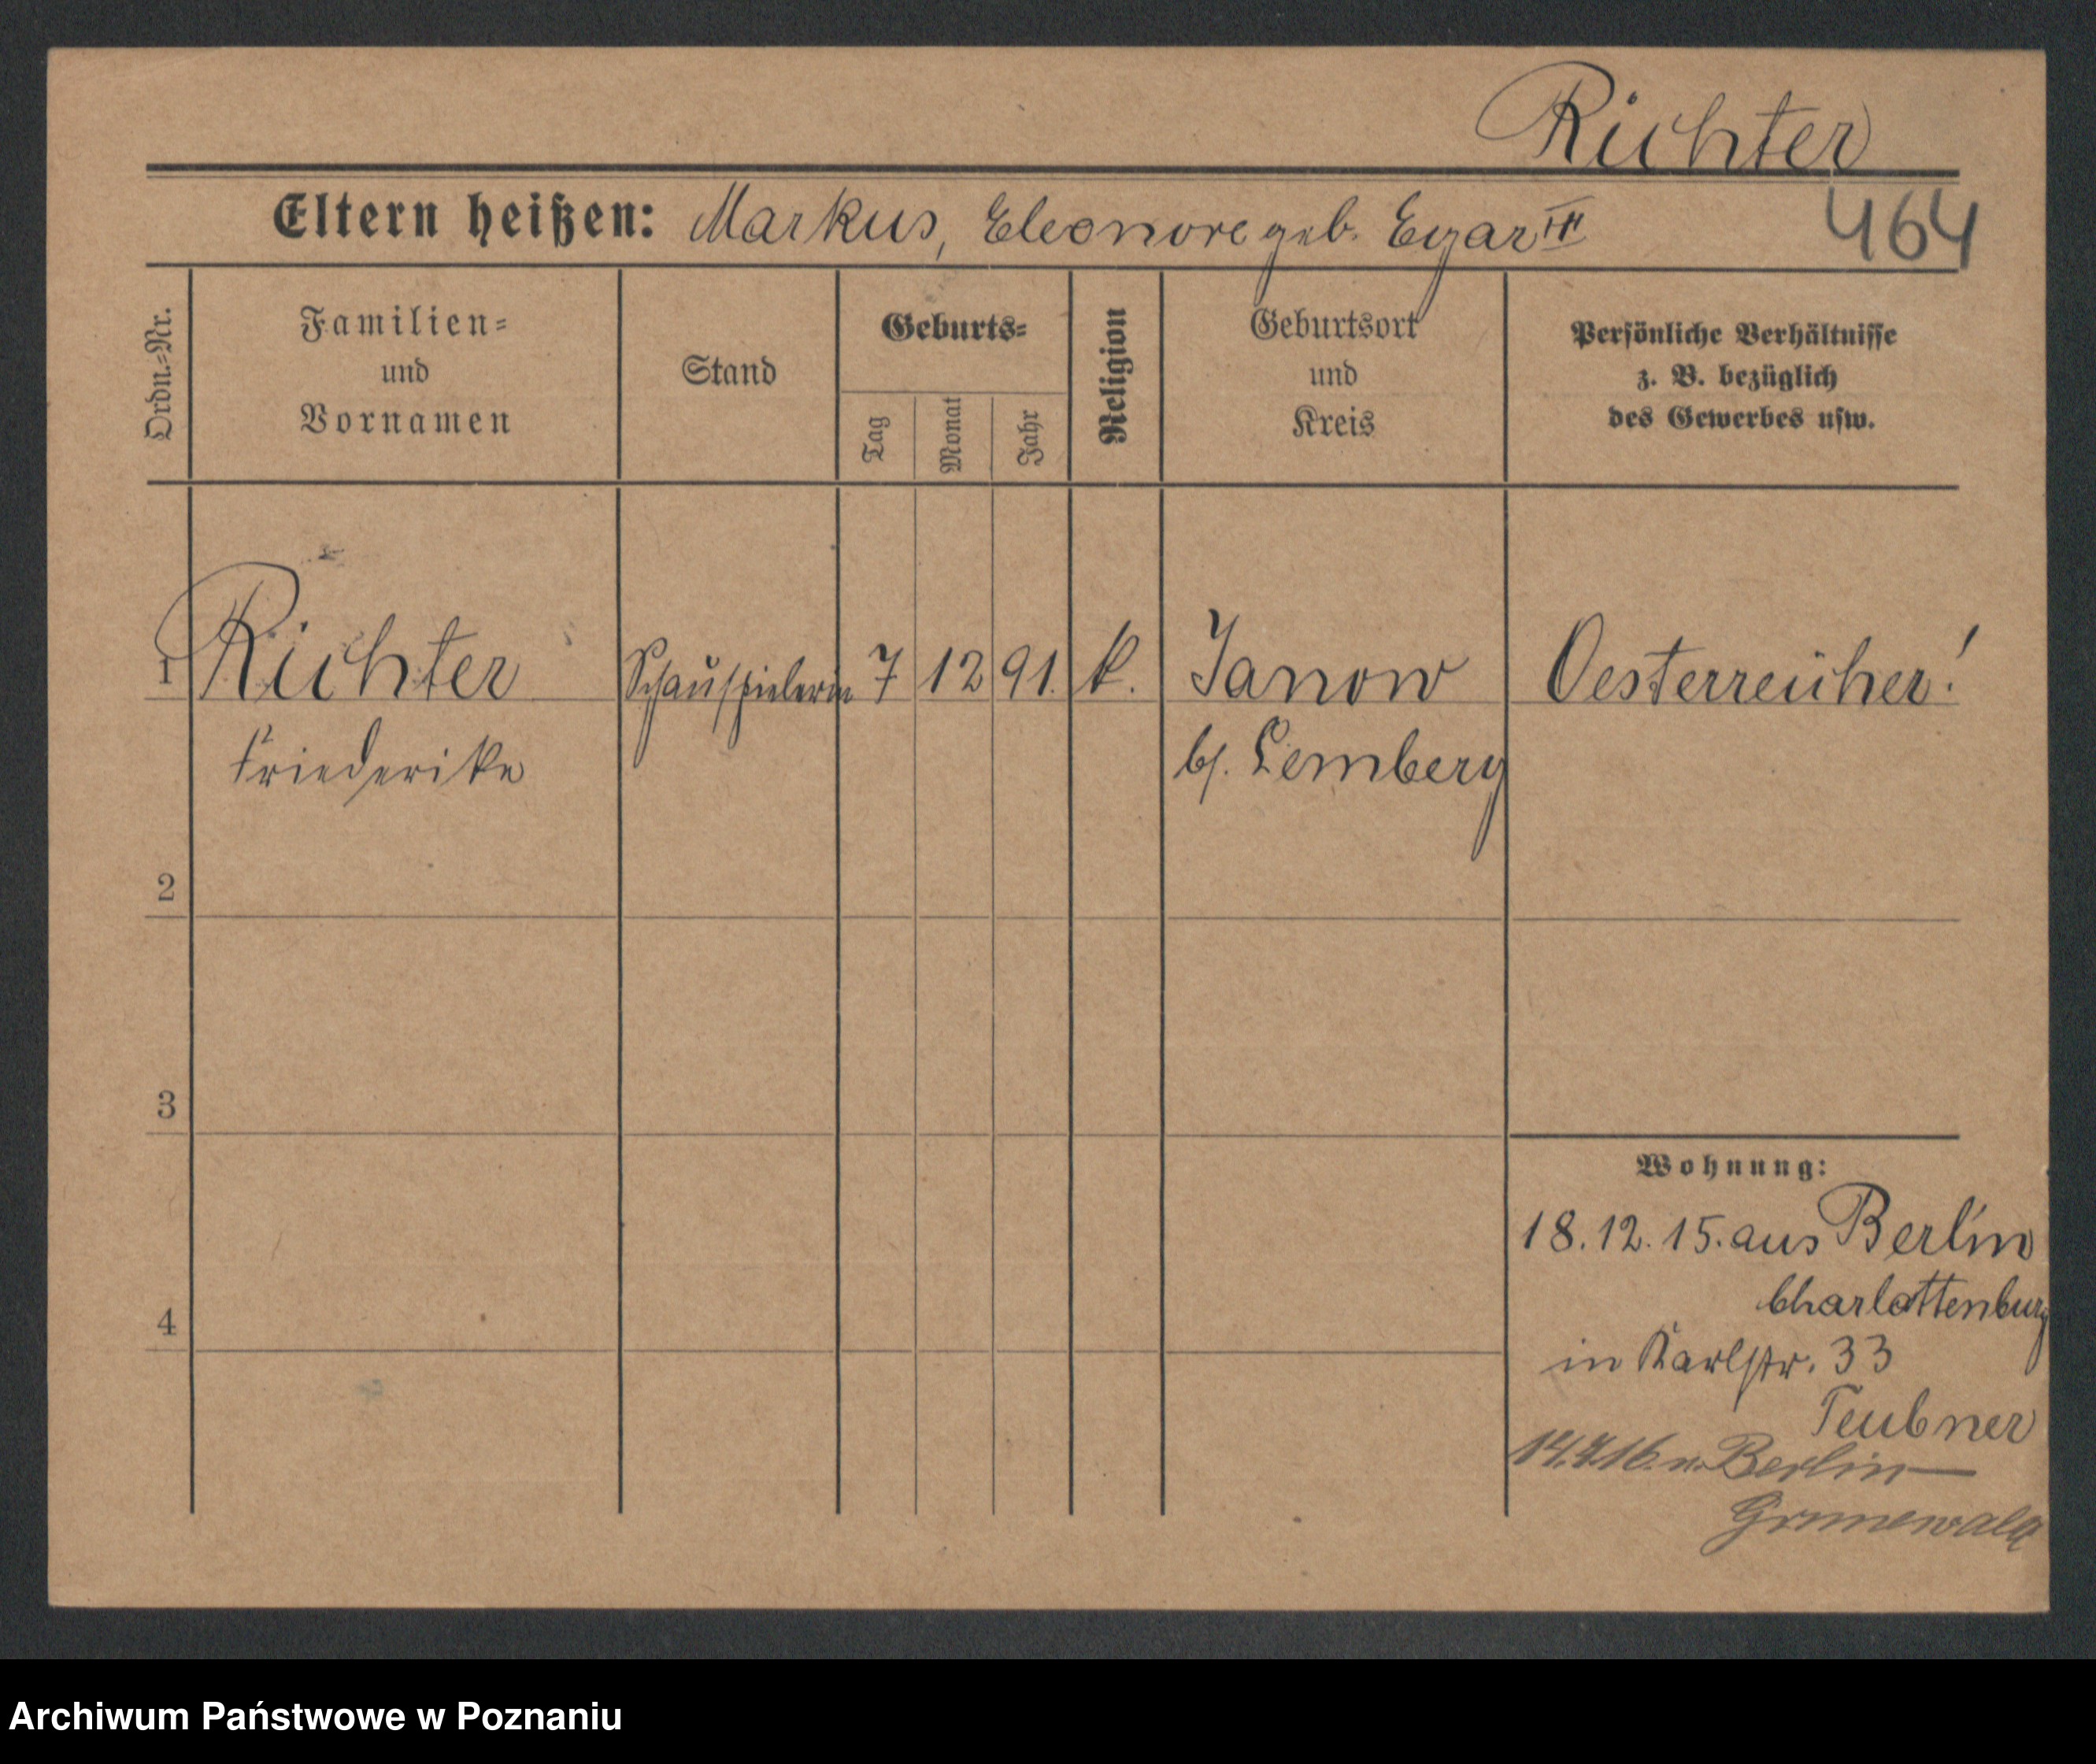 Richter
Eltern heißen: Markus, Eleonore geb.
464
Ordn.=Nr.
Familien=
und
Vornamen
Stand
Geburts=
Tag
Monat
Jahr
Religion
Geburtsort
und
Kreis
Persönliche Verhältnisse
z. B. bezüglich
des Gewerbes usw.
1 Richter Schauspielerin 7 12 91. k. Janow Oesterreicher!
Friederike b/. Lemberg
2
3
4
Wohnung:
18.12.15. aus Berlin
Charlottenburg
in Karlstr. 33
Teubner
14.4.16. n. Berlin—
Grunewald
Archiwum Państwowe w Poznaniu